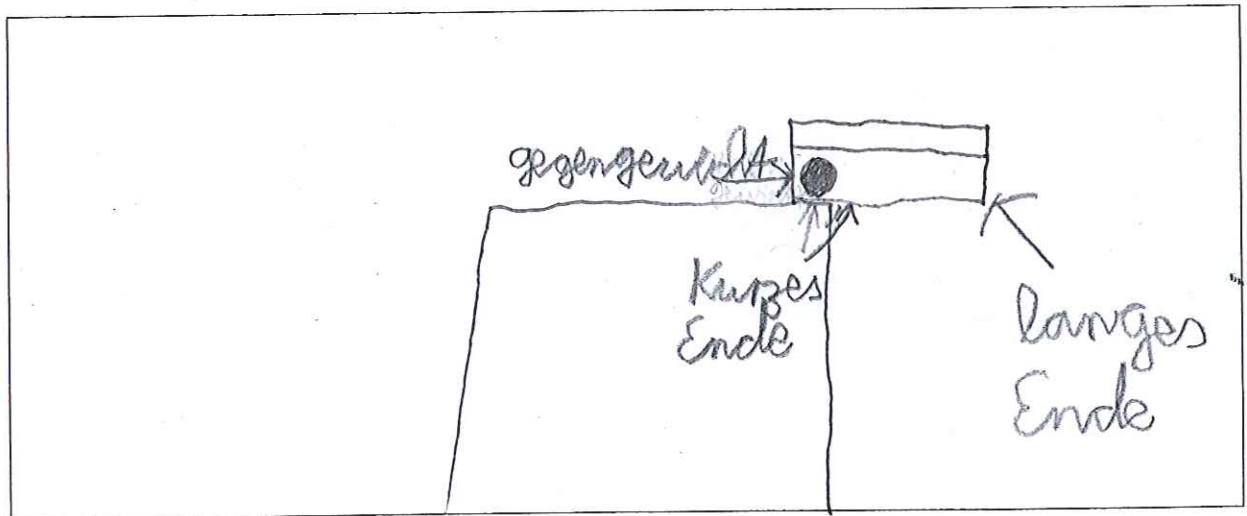 gegengewicht
Kurzes
Ende
langes
Ende